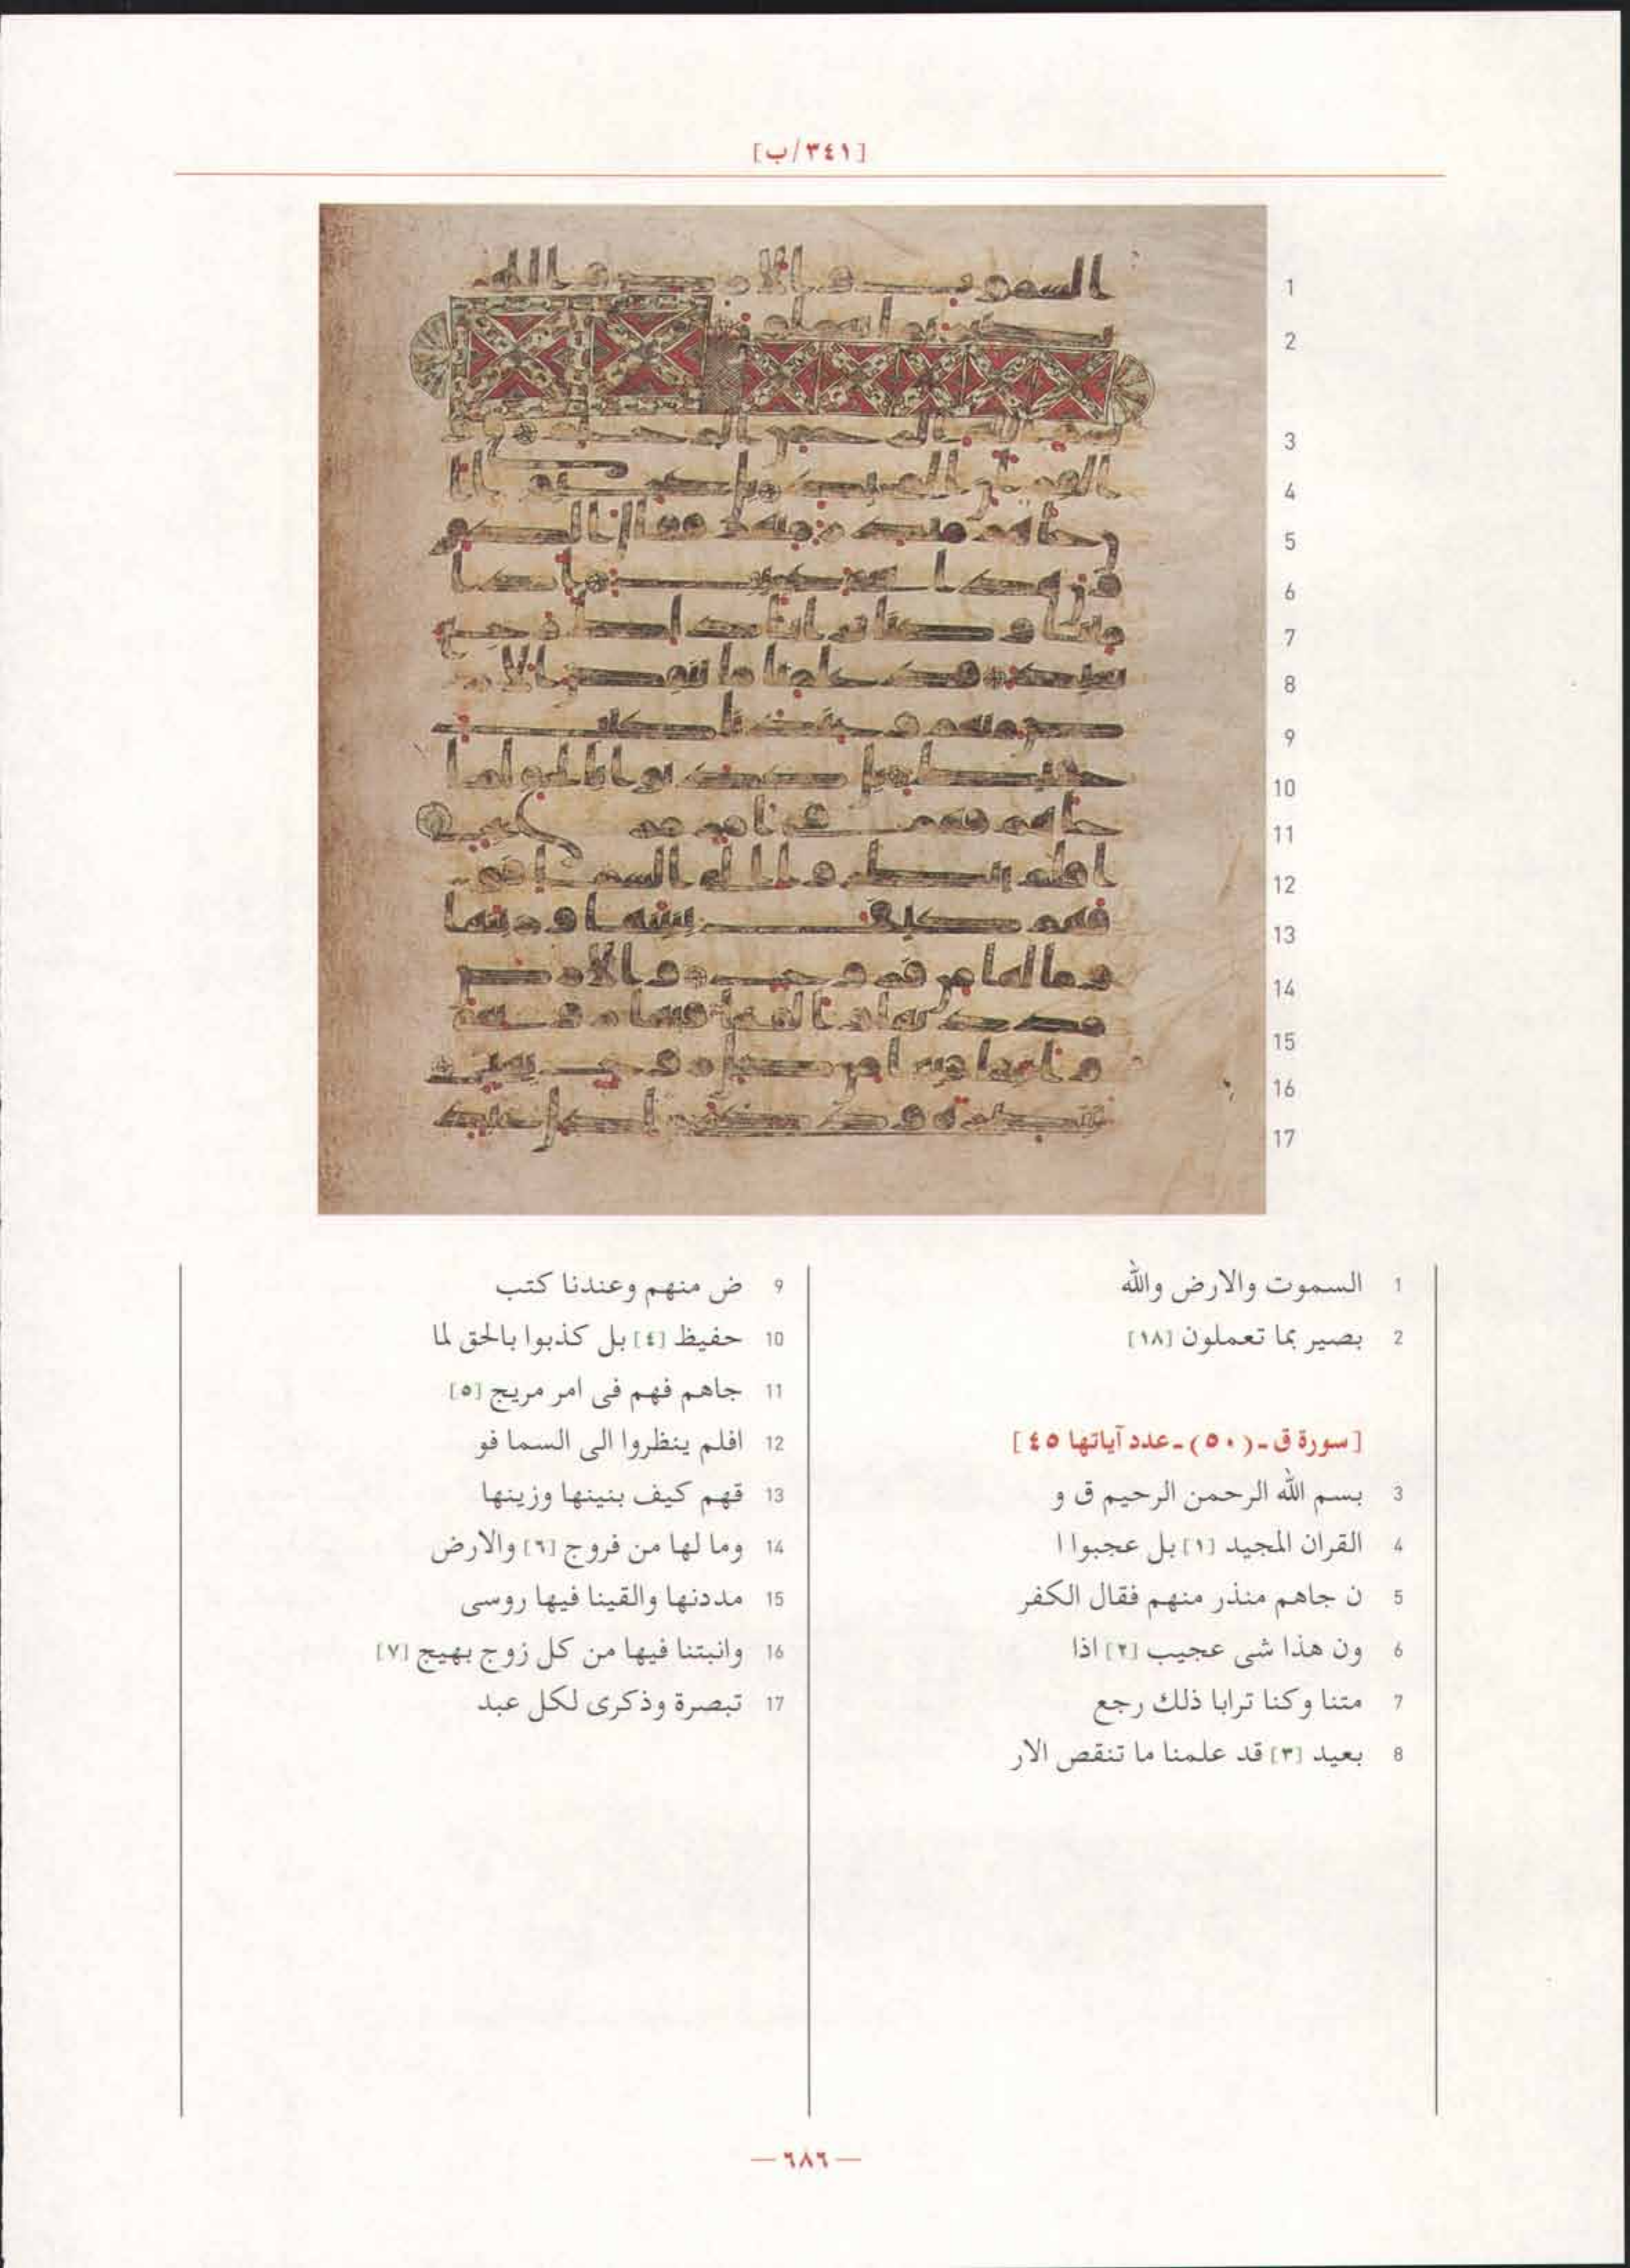 [٣٤١/ب]
1 السموت والارض والله
2 بصير بما تعملون [١٨]
[سورة ق ـ (٥٠) ـ عدد آياتها ٤٥]
3 بسم الله الرحمن الرحيم ق و
4 القران المجيد [١] بل عجبوا ا
5 ن جاهم منذر منهم فقال الكفر
6 ون هذا شى عجيب [٢] اذا
7 متنا وكنا ترابا ذلك رجع
8 بعيد [٣] قد علمنا ما تنقص الار
9 ض منهم وعندنا كتب
10 حفيظ [٤] بل كذبوا بالحق لما
11 جاهم فهم فى امر مريج [٥]
12 افلم ينظروا الى السما فو
13 قهم كيف بنينها وزينها
14 وما لها من فروج [٦] والارض
15 مددنها والقينا فيها روسى
16 وانبتنا فيها من كل زوج بهيج [٧]
17 تبصرة وذكرى لكل عبد
— ٦٨٦ —